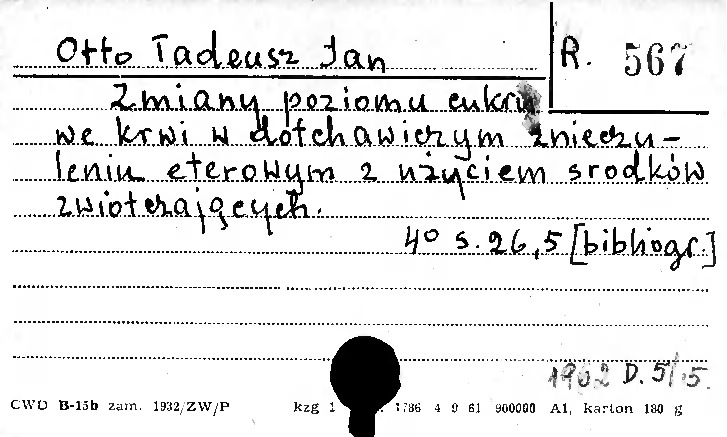 Otto Tadeusz Jan
R. 567
Zmiany poziomu cukru
we krwi w dotchawiczym znieczu-
leniu eterowym z użyciem srodków
zwiotczających.
4° s. 26,5 [bibliogr.]
1962 D. 5/.5.
CWD B-15b zam. 1932/ZW/P kzg 1 1786 4 9 61 900000 A1, karton 180 g